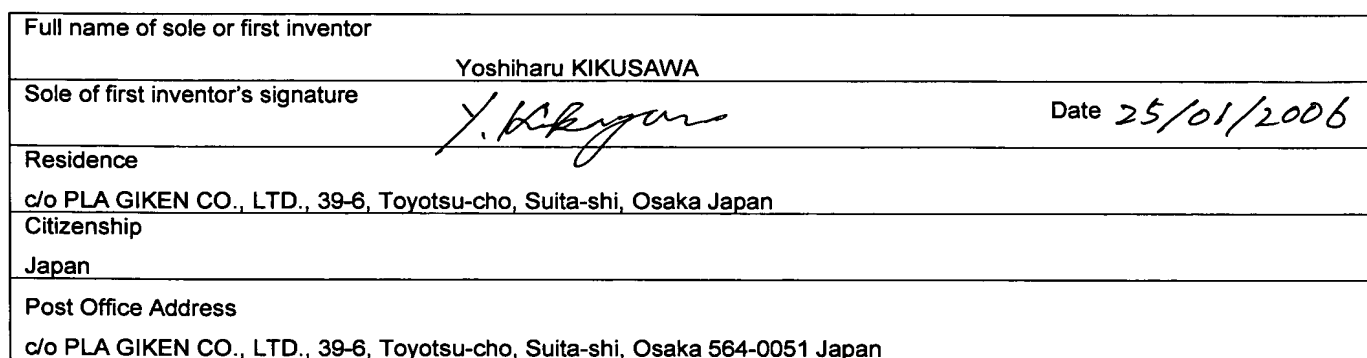 Full name of sole or first inventor
Yoshiharu KIKUSAWA
Sole of first inventor's signature Y. Kikusawa Date 25/01/2006
Residence
c/o PLA GIKEN CO., LTD., 39-6, Toyotsu-cho, Suita-shi, Osaka Japan
Citizenship
Japan
Post Office Address
c/o PLA GIKEN CO., LTD., 39-6, Toyotsu-cho, Suita-shi, Osaka 564-0051 Japan